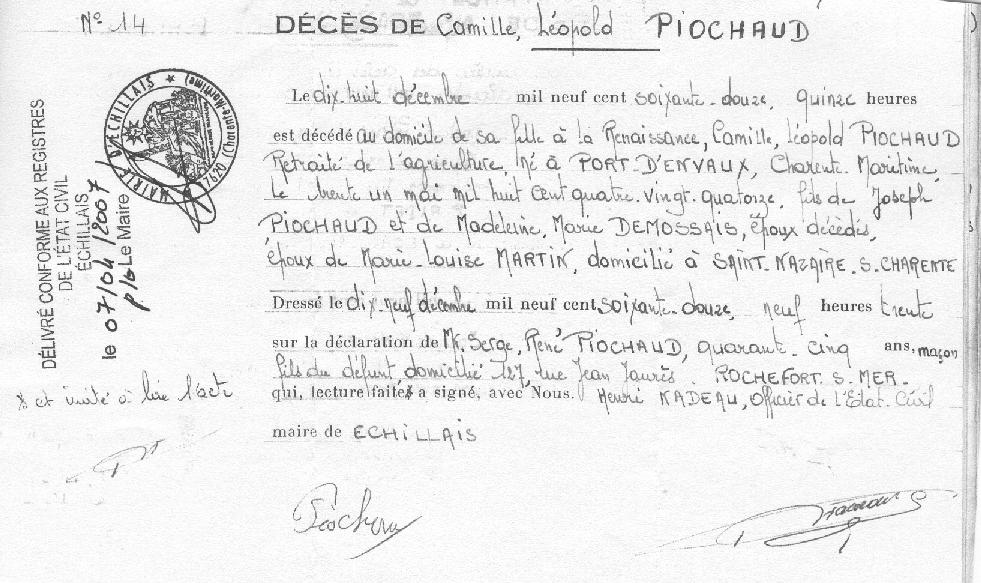 N° 14
DÉCÈS DE Camille, Léopold PIOCHAUD
Le dix-huit décembre mil neuf cent soixante-douze, quinze heures
est décédé au domicile de sa fille à la Renaissance, Camille, Léopold PIOCHAUD
Retraité de l'agriculture, né à PORT-D'ENVAUX, Charente-Maritime,
le trente un mai mil huit cent quatre-vingt-quatorze, fils de Joseph
PIOCHAUD et de Madeleine, Marie DEMOSSAIS, époux décédés,
époux de Marie-Louise MARTIN, domicilié à SAINT-NAZAIRE-S-CHARENTE
Dressé le dix-neuf décembre mil neuf cent soixante-douze, neuf heures trente
sur la déclaration de Mr. Serge, René PIOCHAUD, quarante-cinq ans, maçon
fils du défunt, domicilié 127, rue Jean Jaurès. ROCHEFORT-S-MER-
qui, lecture faite a signé, avec Nous. Henri NADEAU, Officier de l'Etat-Civil
maire de ECHILLAIS
et invité à lire l'acte
DÉLIVRÉ CONFORME AUX REGISTRES
DE L'ÉTAT CIVIL
ÉCHILLAIS
le 07/04/2007
Le Maire
MAIRIE D'ÉCHILLAIS
17620 (Charente-Maritime)